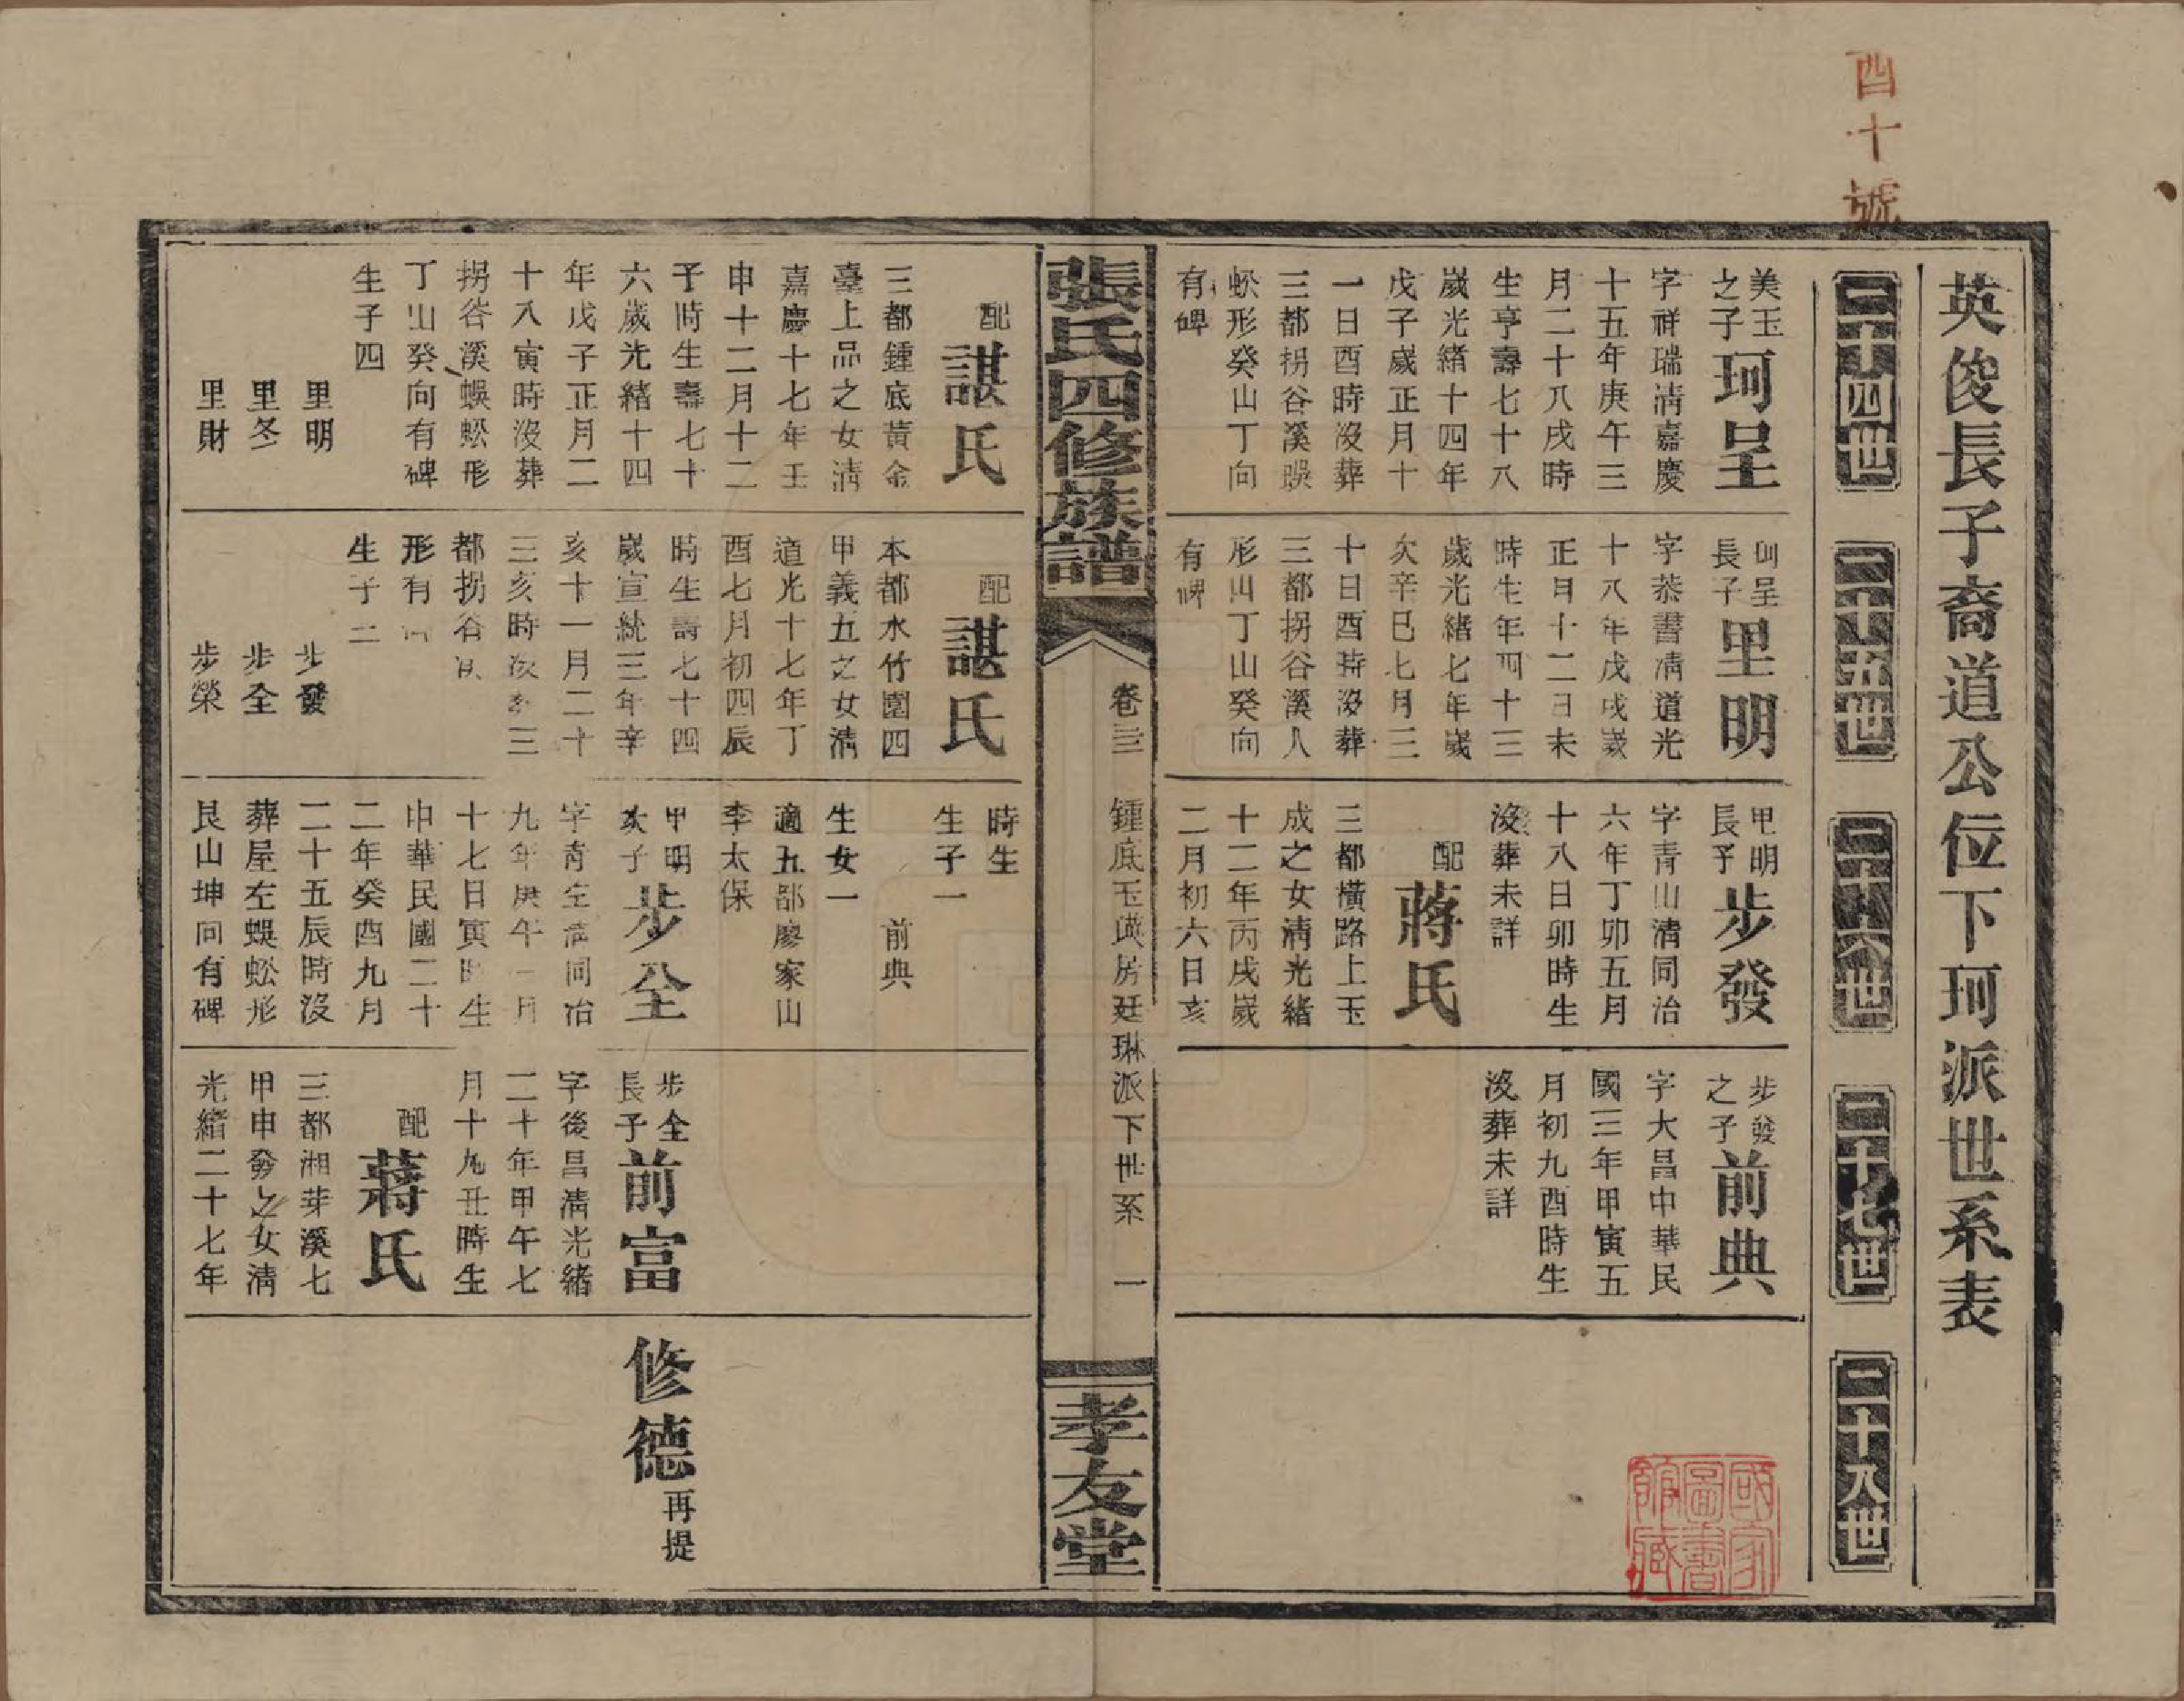 四十號
英俊長子裔道公位下珂派世系表
二十四世
二十五世
二十六世
二十七世
二十八世
美玉
之子
珂呈
字祥瑞淸嘉慶
十五年庚午三
月二十八戌時
生亨壽七十八
歲光緒十四年
戊子歲正月十
一日酉時沒葬
三都拐谷溪蜈
蚣形癸山丁向
有碑
珂呈
長子
里明
字恭書淸道光
十八年戊戌歲
正月十二日未
時生年四十三
歲光緒七年歲
次辛巳七月三
十日酉時沒葬
三都拐谷溪人
形山丁山癸向
有碑
里明
長子
步發
字青山清同治
六年丁卯五月
十八日卯時生
沒葬未詳
配
蔣氏
三都橫路上玉
成之女淸光緒
十二年丙戌歲
二月初六日亥
步發
之子
前典
字大昌中華民
國三年甲寅五
月初九酉時生
沒葬未詳
國家
圖書
館藏
張氏四修族譜
卷三
鍾底玉瑛房廷琳派下世系
一
孝友堂
配
諶氏
三都鍾底黃金
臺上品之女淸
嘉慶十七年壬
申十二月十二
子時生壽七十
六歲光緒十四
年戊子正月二
十八寅時沒葬
拐谷溪蜈蚣形
丁山癸向有碑
生子四
里明
里冬
里財
配
諶氏
本都水竹園四
甲義五之女淸
道光十七年丁
酉七月初四辰
時生壽七十四
歲宣統三年辛
亥十一月二十
三亥時沒葬三
都拐谷
形有
生子三
步發
步全
步榮
時生
生子一
前典
生女一
適五都廖家山
李太保
里明
次子
步全
字青 淸同治
九年庚午二月
十七日寅時生
中華民國二十
二年癸酉九月
二十五辰時沒
葬屋左蜈蚣形
艮山坤向有碑
步全
長子
前富
字後昌淸光緒
二十年甲午七
月十九丑時生
配
蔣氏
三都湘芽溪七
甲申發之女淸
光緒二十七年
修德
再提